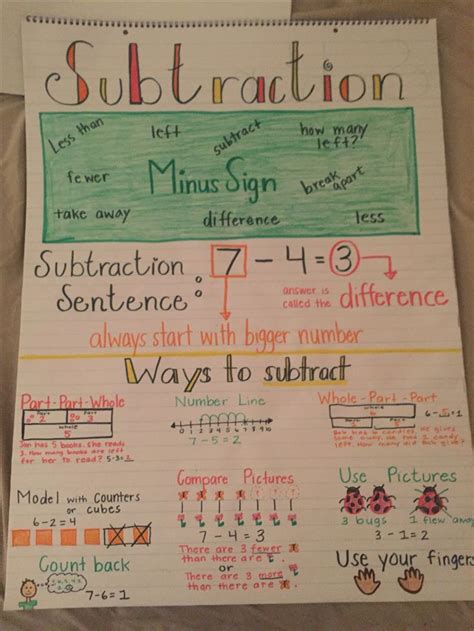 Subtraction
Less than
left
subtract
how many left?
fewer
Minus Sign
break apart
take away
difference
less
Subtraction Sentence:
7 - 4 = 3
answer is called the difference
always start with bigger number
Ways to subtract
Part-Part-Whole
Part
Part
3
whole
5
Jan has 5 books. She reads
3. How many books are left
for her to read? 5-3=
Number Line
7-5=2
Whole-Part-Part
whole
6
Part
Part
Model with Counters
or cubes
6-2=4
Compare Pictures
7-4=3
There are 3 fewer
than there are
or
There are 3 more
than there are
Use Pictures
3 bugs
1 flew away
3-1=2
Count back
7-6=1
Use your fingers